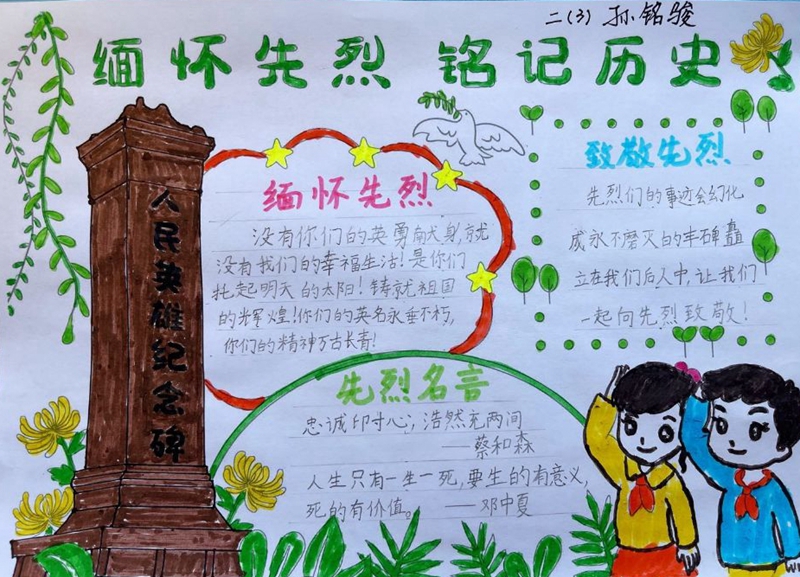 二(3) 孙铭骏
缅怀先烈 铭记历史
人民英雄纪念碑
缅怀先烈
没有你们的英勇献身,就
没有我们的幸福生活!是你们
托起明天的太阳!铸就祖国
的辉煌!你们的英名永垂不朽,
你们的精神万古长青!
致敬先烈
先烈们的事迹会幻化
成永不磨灭的丰碑矗
立在我们后人中,让我们
一起向先烈致敬!
先烈名言
忠诚印寸心,浩然充两间
——蔡和森
人生只有一生一死,要生的有意义,
死的有价值。——邓中夏